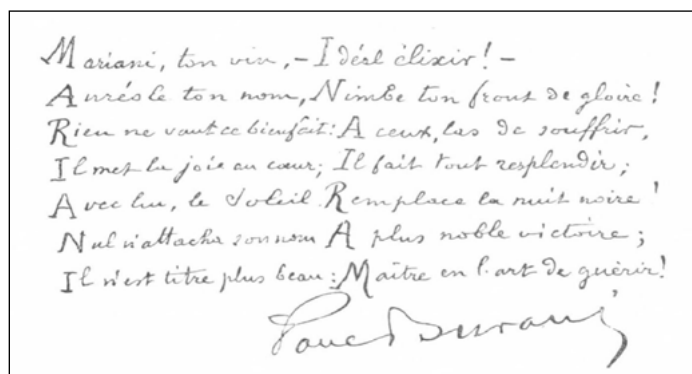 Mariani, ton vin, – Idéal élixir! –
Auréole ton nom, Nimbe ton front de gloire!
Rien ne vaut ce bienfait: A ceux, las de souffrir,
Il met la joie au cœur; Il fait tout resplendir;
Avec lui, le Soleil Remplace la nuit noire!
Nul n'attacha son nom A plus noble victoire;
Il n'est titre plus beau: Maître en l'art de guérir!